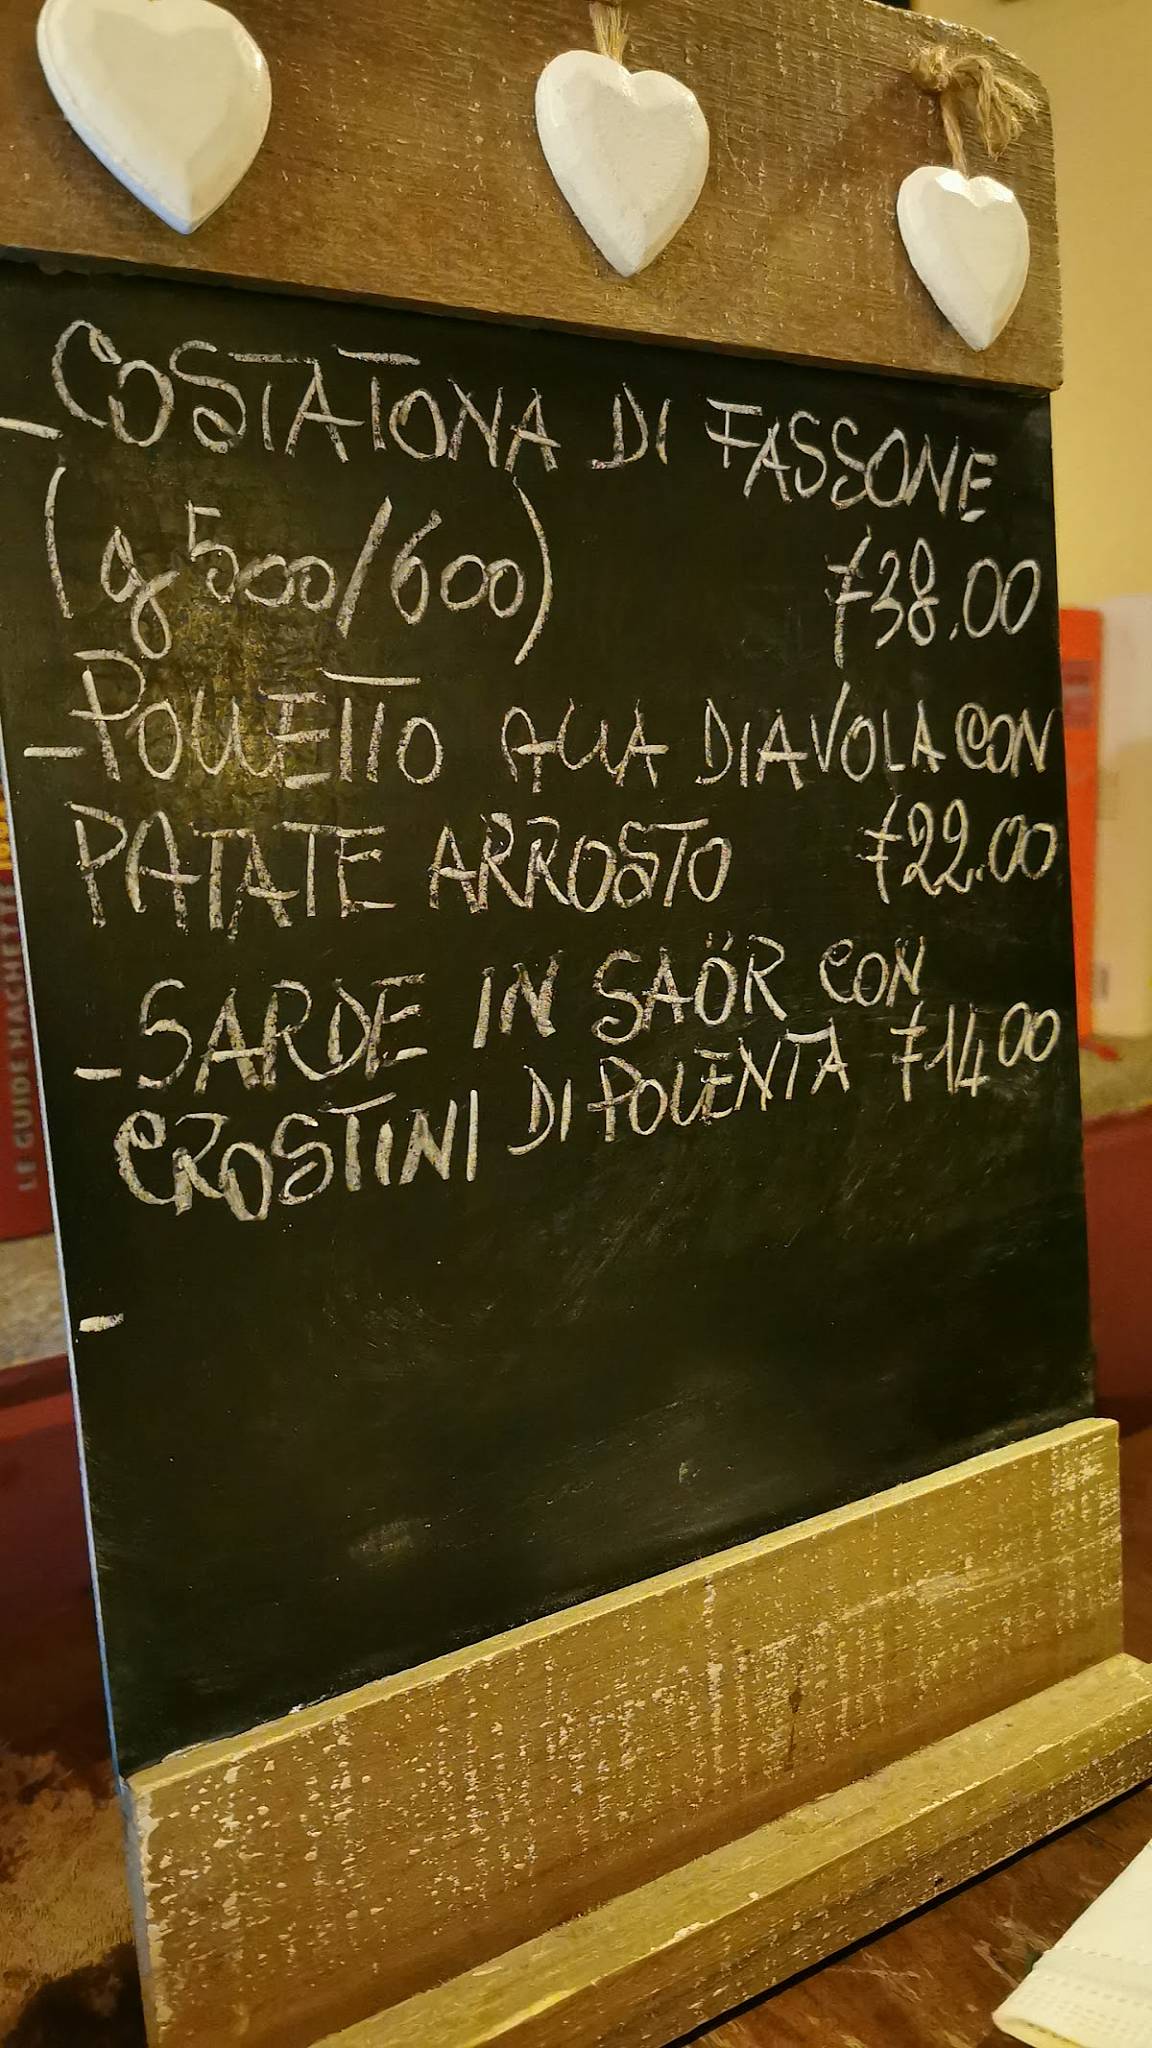 - COSTATONA DI FASSONE
(g 500/600) € 38.00
- POLLETTO ALLA DIAVOLA CON
PATATE ARROSTO € 22.00
- SARDE IN SAÖR CON
CROSTINI DI POLENTA € 14.00
-
LE GUIDE HACHETTE